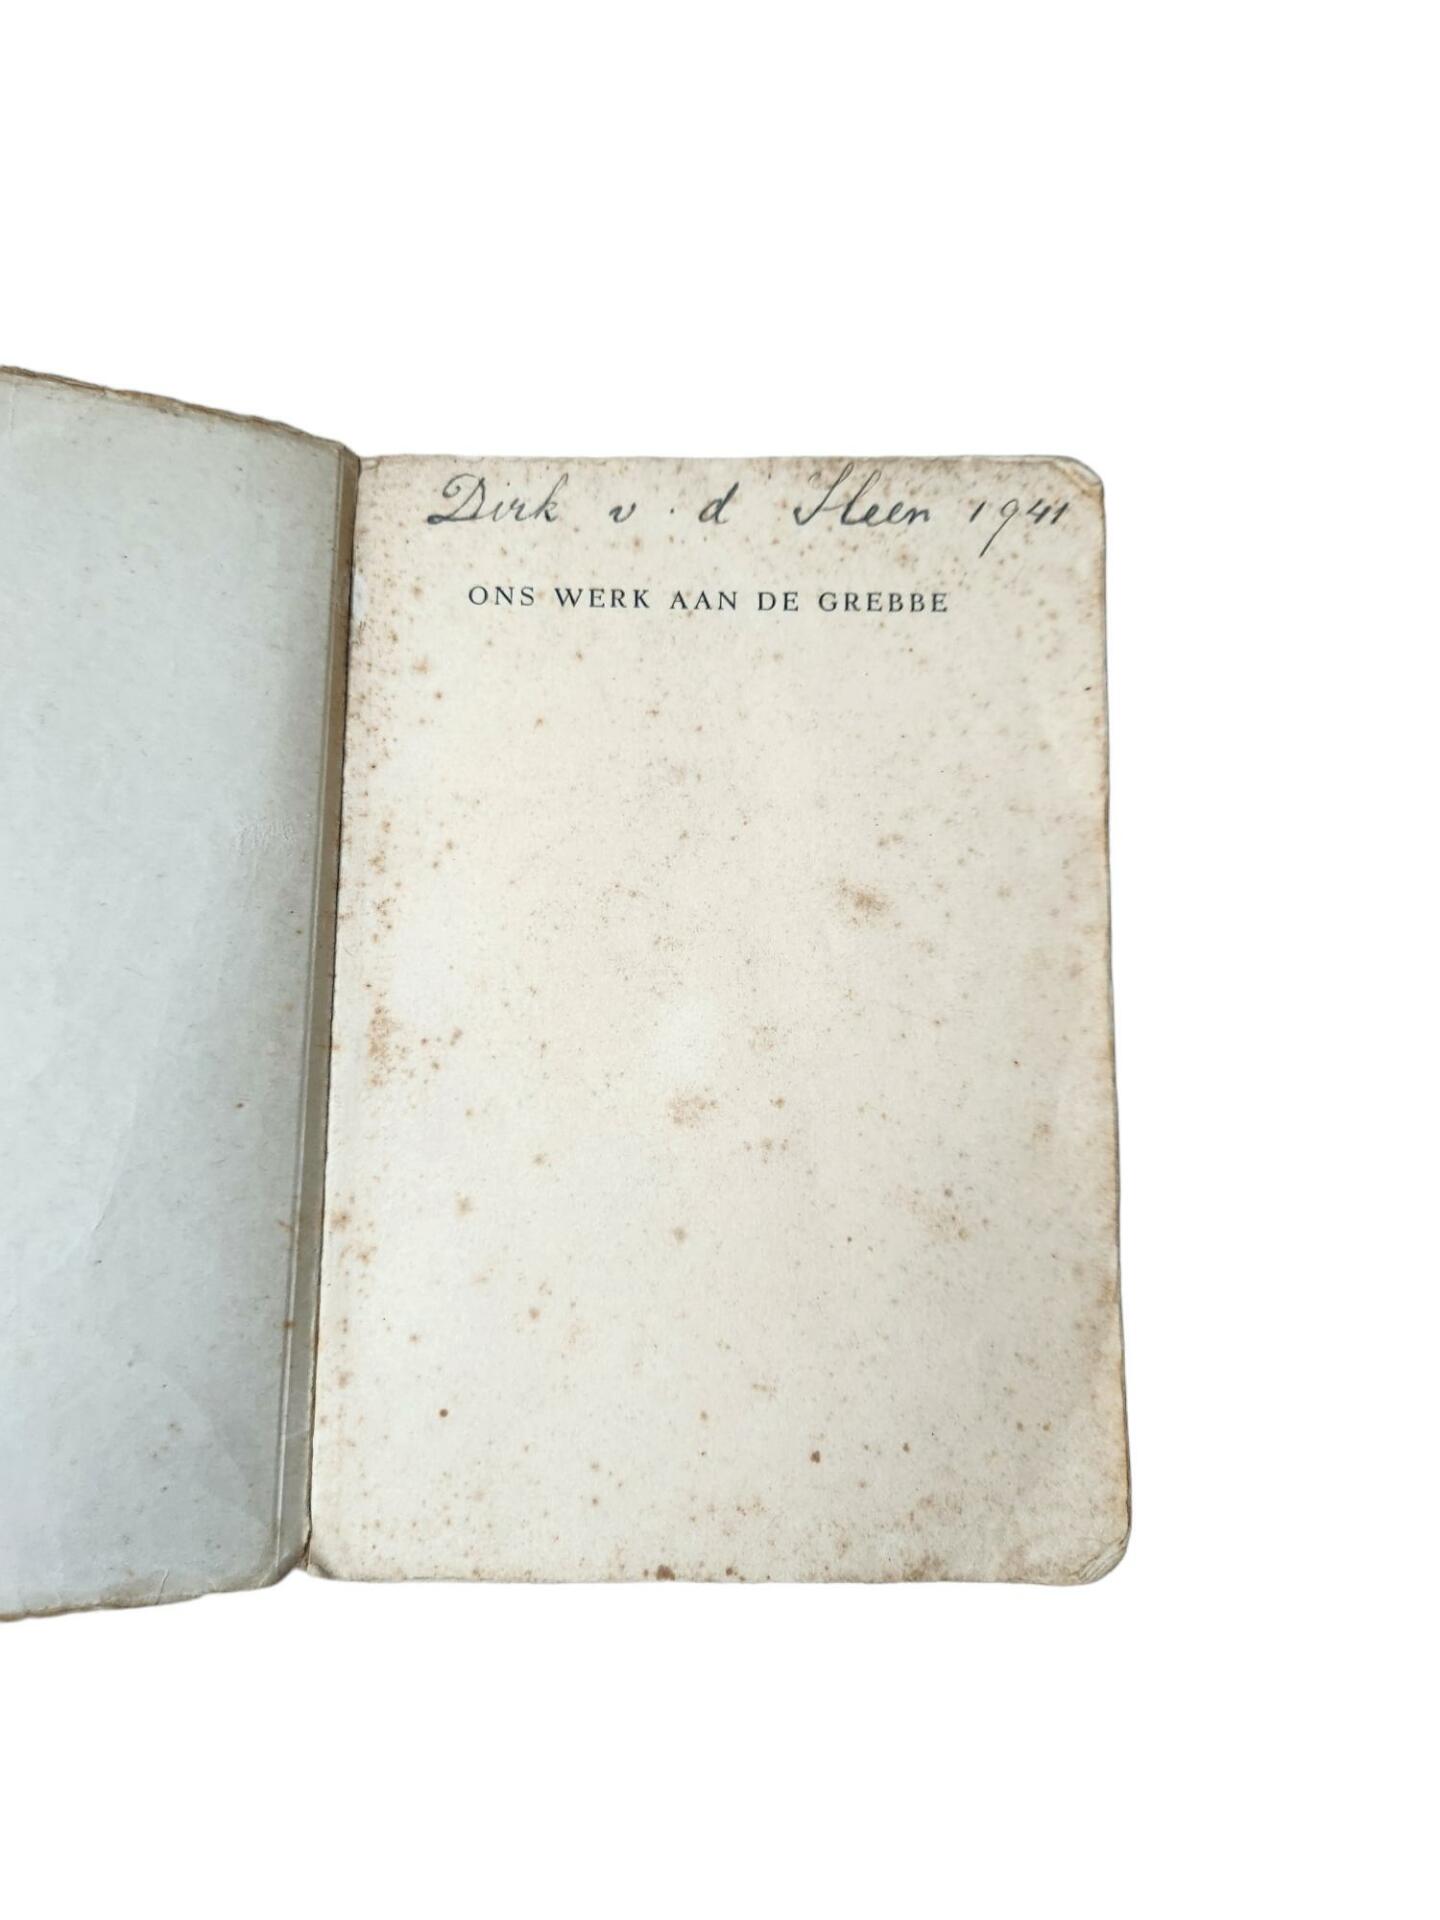 Dirk v. d Steen 1941
ONS WERK AAN DE GREBBE